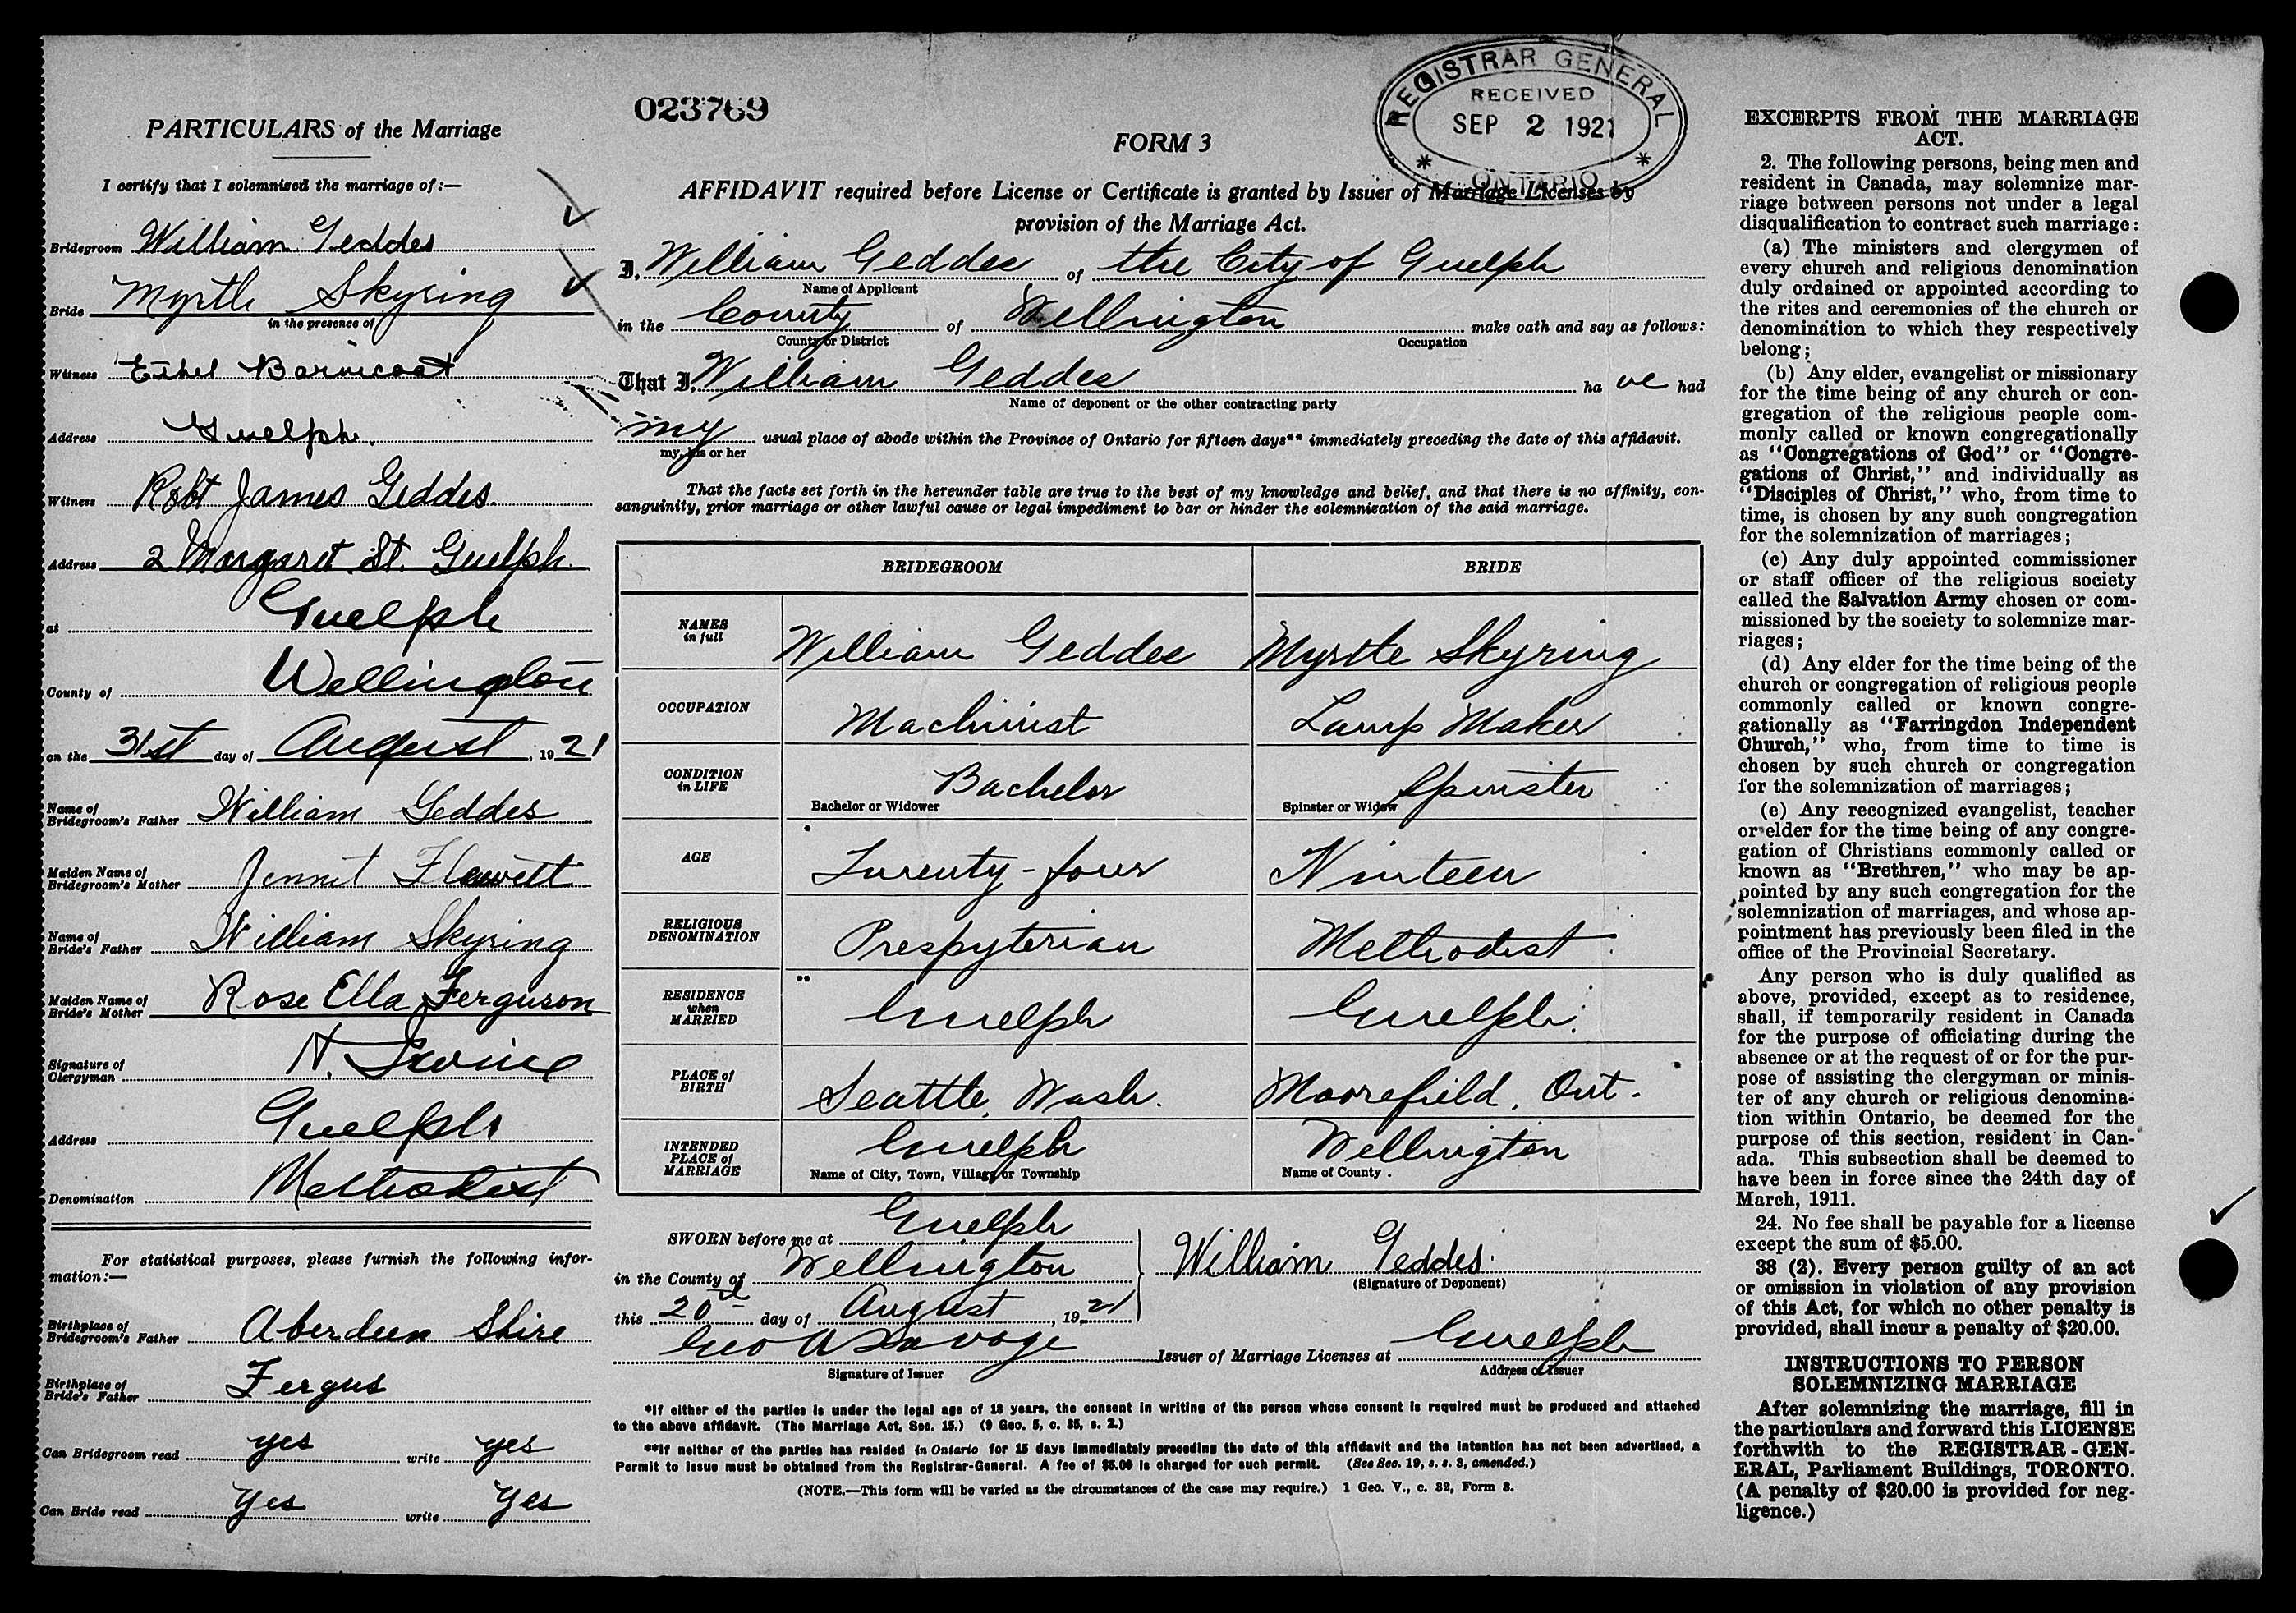 PARTICULARS of the Marriage
I certify that I solemnized the marriage of:—
Bridegroom William Geddes
Bride Myrtle Skyring
in the presence of
Witness Ethel Barnicoat
Address Guelph.
Witness Robt James Geddes.
Address 2 Margaret. St. Guelph.
at Guelph
County of Wellington
on the 31st day of August, 1921
Name of
Bridegroom's Father William Geddes
Maiden Name of
Bridegroom's Mother Jennet Flewett
Name of
Bride's Father William Skyring
Maiden Name of
Bride's Mother Rose Ella Ferguson
Signature of
Clergyman N. Irvine
Address Guelph
Denomination Methodist
For statistical purposes, please furnish the following infor-
mation:—
Birthplace of
Bridegroom's Father Aberdeen Shire
Birthplace of
Bride's Father Fergus
Can Bridegroom read yes write yes
Can Bride read Yes write Yes
023769
FORM 3
REGISTRAR GENERAL
RECEIVED
SEP 2 1921
ONTARIO
AFFIDAVIT required before License or Certificate is granted by Issuer of Marriage Licenses by
provision of the Marriage Act.
I, William Geddes of the City of Guelph
Name of Applicant
in the County of Wellington make oath and say as follows:
County or District Occupation
That I, William Geddes ha ve had
Name of deponent or the other contracting party
my usual place of abode within the Province of Ontario for fifteen days** immediately preceding the date of this affidavit.
my, his or her
That the facts set forth in the hereunder table are true to the best of my knowledge and belief, and that there is no affinity, con-
sanguinity, prior marriage or other lawful cause or legal impediment to bar or hinder the solemnization of the said marriage.
BRIDEGROOM BRIDE
NAMES
in full William Geddes Myrtle Skyring
OCCUPATION Machinist Lamp Maker
CONDITION
in LIFE Bachelor Spinster
Bachelor or Widower Spinster or Widow
AGE * Twenty-four Ninteen
RELIGIOUS
DENOMINATION Prespyterian Methodist
RESIDENCE
when
MARRIED ** Guelph Guelph.
PLACE of
BIRTH Seattle, Wash. Moorefield, Ont.
INTENDED
PLACE of
MARRIAGE Guelph Wellington
Name of City, Town, Village or Township Name of County.
SWORN before me at Guelph
in the County of Wellington
this 20th day of August, 1921
William Geddes.
(Signature of Deponent)
Geo A Savage Issuer of Marriage Licenses at Guelph
Signature of Issuer Address of Issuer
*If either of the parties is under the legal age of 18 years, the consent in writing of the person whose consent is required must be produced and attached
to the above affidavit. (The Marriage Act, Sec. 15.) (9 Geo. 5, c. 35, s. 2.)
**If neither of the parties has resided in Ontario for 15 days immediately preceding the date of this affidavit and the intention has not been advertised, a
Permit to Issue must be obtained from the Registrar-General. A fee of $5.00 is charged for such permit. (See Sec. 19, s. s. 3, amended.)
(NOTE.—This form will be varied as the circumstances of the case may require.) 1 Geo. V., c. 32, Form 3.
EXCERPTS FROM THE MARRIAGE
ACT.
2. The following persons, being men and
resident in Canada, may solemnize mar-
riage between persons not under a legal
disqualification to contract such marriage:
(a) The ministers and clergymen of
every church and religious denomination
duly ordained or appointed according to
the rites and ceremonies of the church or
denomination to which they respectively
belong;
(b) Any elder, evangelist or missionary
for the time being of any church or con-
gregation of the religious people com-
monly called or known congregationally
as "Congregations of God" or "Congre-
gations of Christ," and individually as
"Disciples of Christ," who, from time to
time, is chosen by any such congregation
for the solemnization of marriages;
(c) Any duly appointed commissioner
or staff officer of the religious society
called the Salvation Army chosen or com-
missioned by the society to solemnize mar-
riages;
(d) Any elder for the time being of the
church or congregation of religious people
commonly called or known congre-
gationally as "Farringdon Independent
Church," who, from time to time is
chosen by such church or congregation
for the solemnization of marriages;
(e) Any recognized evangelist, teacher
or elder for the time being of any congre-
gation of Christians commonly called or
known as "Brethren," who may be ap-
pointed by any such congregation for the
solemnization of marriages, and whose ap-
pointment has previously been filed in the
office of the Provincial Secretary.
Any person who is duly qualified as
above, provided, except as to residence,
shall, if temporarily resident in Canada
for the purpose of officiating during the
absence or at the request of or for the pur-
pose of assisting the clergyman or minis-
ter of any church or religious denomina-
tion within Ontario, be deemed for the
purpose of this section, resident in Can-
ada. This subsection shall be deemed to
have been in force since the 24th day of
March, 1911.
24. No fee shall be payable for a license
except the sum of $5.00.
38 (2). Every person guilty of an act
or omission in violation of any provision
of this Act, for which no other penalty is
provided, shall incur a penalty of $20.00.
INSTRUCTIONS TO PERSON
SOLEMNIZING MARRIAGE
After solemnizing the marriage, fill in
the particulars and forward this LICENSE
forthwith to the REGISTRAR-GEN-
ERAL, Parliament Buildings, TORONTO.
(A penalty of $20.00 is provided for neg-
ligence.)